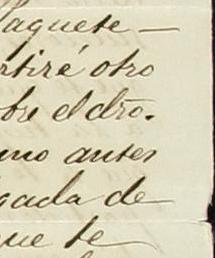 Paquete —
rtiré otro
bre el dro.
uno antes
gada de
que te